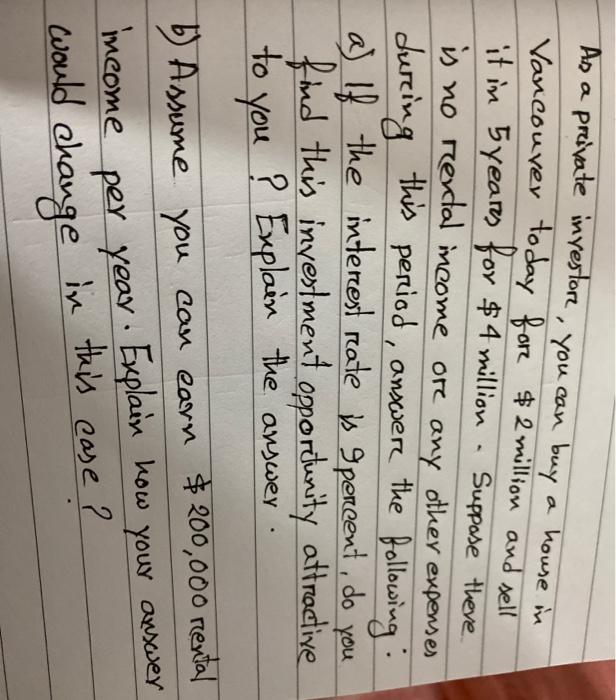 As a private investore, you can buy a house in
Vancouver today fore $2 million and sell
it in 5 years for $4 million. Suppose there
is no rental income ore any other expenses
during this period, answere the following:
a) If the interest rate is 9 percent, do you
find this investment opportunity attractive
to you? Explain the answer.
b) Assume you can earn $200,000 rental
income per year. Explain how your answer
would change in this case?